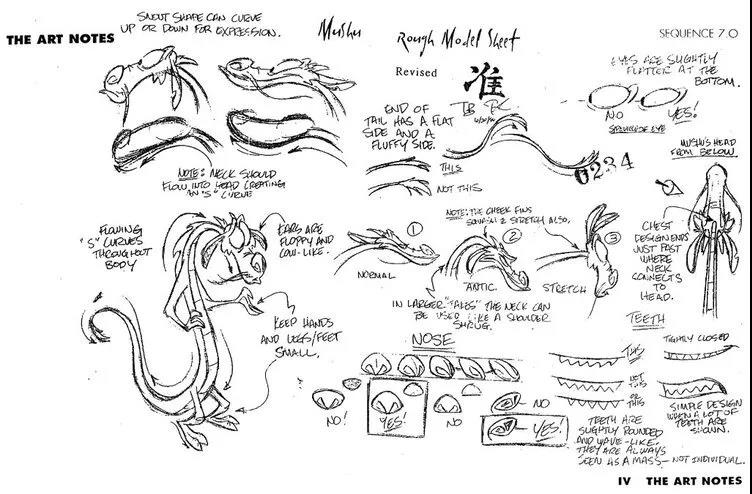 THE ART NOTES
SNOUT SHAPE CAN CURVE
UP OR DOWN FOR EXPRESSION.
Mushu
Rough Model Sheet
Revised
准
SEQUENCE 7.0
EYES ARE SLIGHTLY
FLATTER AT THE
BOTTOM.
NO
YES!
END OF
TAIL HAS A FLAT
SIDE AND A
FLUFFY SIDE.
THIS
NOT THIS
0234
MUSHU'S HEAD
FROM BELOW.
NOTE: NECK SHOULD
FLOW INTO HEAD CREATING
AN "S" CURVE
FLOWING
"S" CURVES
THROUGHOUT
BODY
EARS ARE
FLOPPY AND
COW-LIKE.
NOTE: THE CHEEK FINS
SQUASH & STRETCH ALSO.
1
2
3
NORMAL
ANTIC.
STRETCH
IN LARGER "TAKES" THE NECK CAN
BE USED LIKE A SHOULDER
SHRUG.
CHEST
DESIGN ENDS
JUST PAST
WHERE
NECK
CONNECTS
TO
HEAD.
KEEP HANDS
AND LEGS/FEET
SMALL.
NOSE
NO!
YES!
NO
NO
YES!
TEETH
THIS
NOT
THIS
OR
THIS
TIGHTLY CLOSED
SIMPLE DESIGN
WHEN A LOT OF
TEETH ARE
SHOWN.
TEETH ARE
SLIGHTLY ROUNDED
AND WAVE-LIKE.
THEY ARE ALWAYS
SEEN AS A MASS - NOT INDIVIDUAL.
IV THE ART NOTES